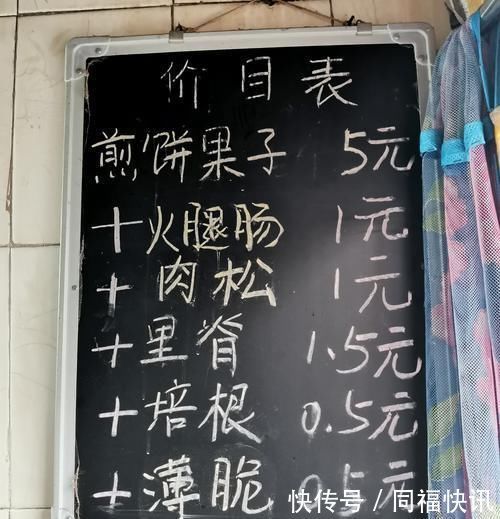 价目表
煎饼果子 5元
+火腿肠 1元
+肉松 1元
+里脊 1.5元
+培根 0.5元
+薄脆 0.5元
快传号 / 同福快讯